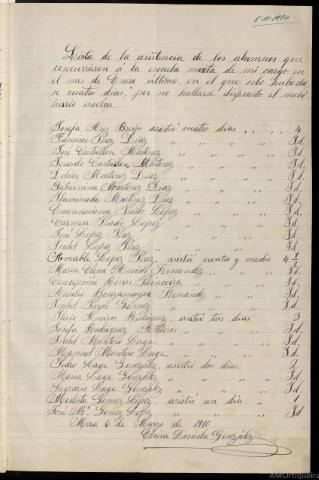 6-III-1910
Lista de la asistencia de los alumnos que
concurrieron á la escuela mixta de mi cargo en
el mes de Enero último, en el que solo hubo cla-
se cuatro dias, por no hallarse dispuesto el mobi-
liario escolar.
Josefa Rey Breijo asistió cuatro dias „ „ „ 4
Francisco Pérez Díaz „ „ „ Id.
José Castrillón Martínez „ „ „ Id.
Gerardo Castrillón Martínez „ „ Id.
Dolores Martínez Díaz „ „ „ Id.
Saturnina Martínez Díaz „ „ „ Id.
Iluminada Martínez Díaz „ „ „ Id.
Emerenciana Prado López „ „ „ Id.
Carmen Prado López „ „ „ Id.
José López Paz „ „ „ Id.
Isabel López Paz „ „ „ Id.
Romable López Paz, asistió cuatro y medio 4 ½
María Elena Fernández „ „ Id.
Concepción „ „ Id.
Fernando „ „ Id.
Isabel Gómez „ „ „ Id.
Fernández, asistió tres dias 3
Josefa Rodríguez „ „ Id.
Isabel Montero Lage „ „ „ Id.
Manuel Montero Lage „ „ „ Id.
Pedro Lage González, asistió dos dias 2
María Lage González „ „ „ Id.
Sagrario Lage González „ „ „ Id.
Modesta Gómez López, asistió un dia „ 1
José Mª Gómez López „ „ „ Id
Mera 6 de Marzo de 1910
Elvira Losada González
AMOrtigueira